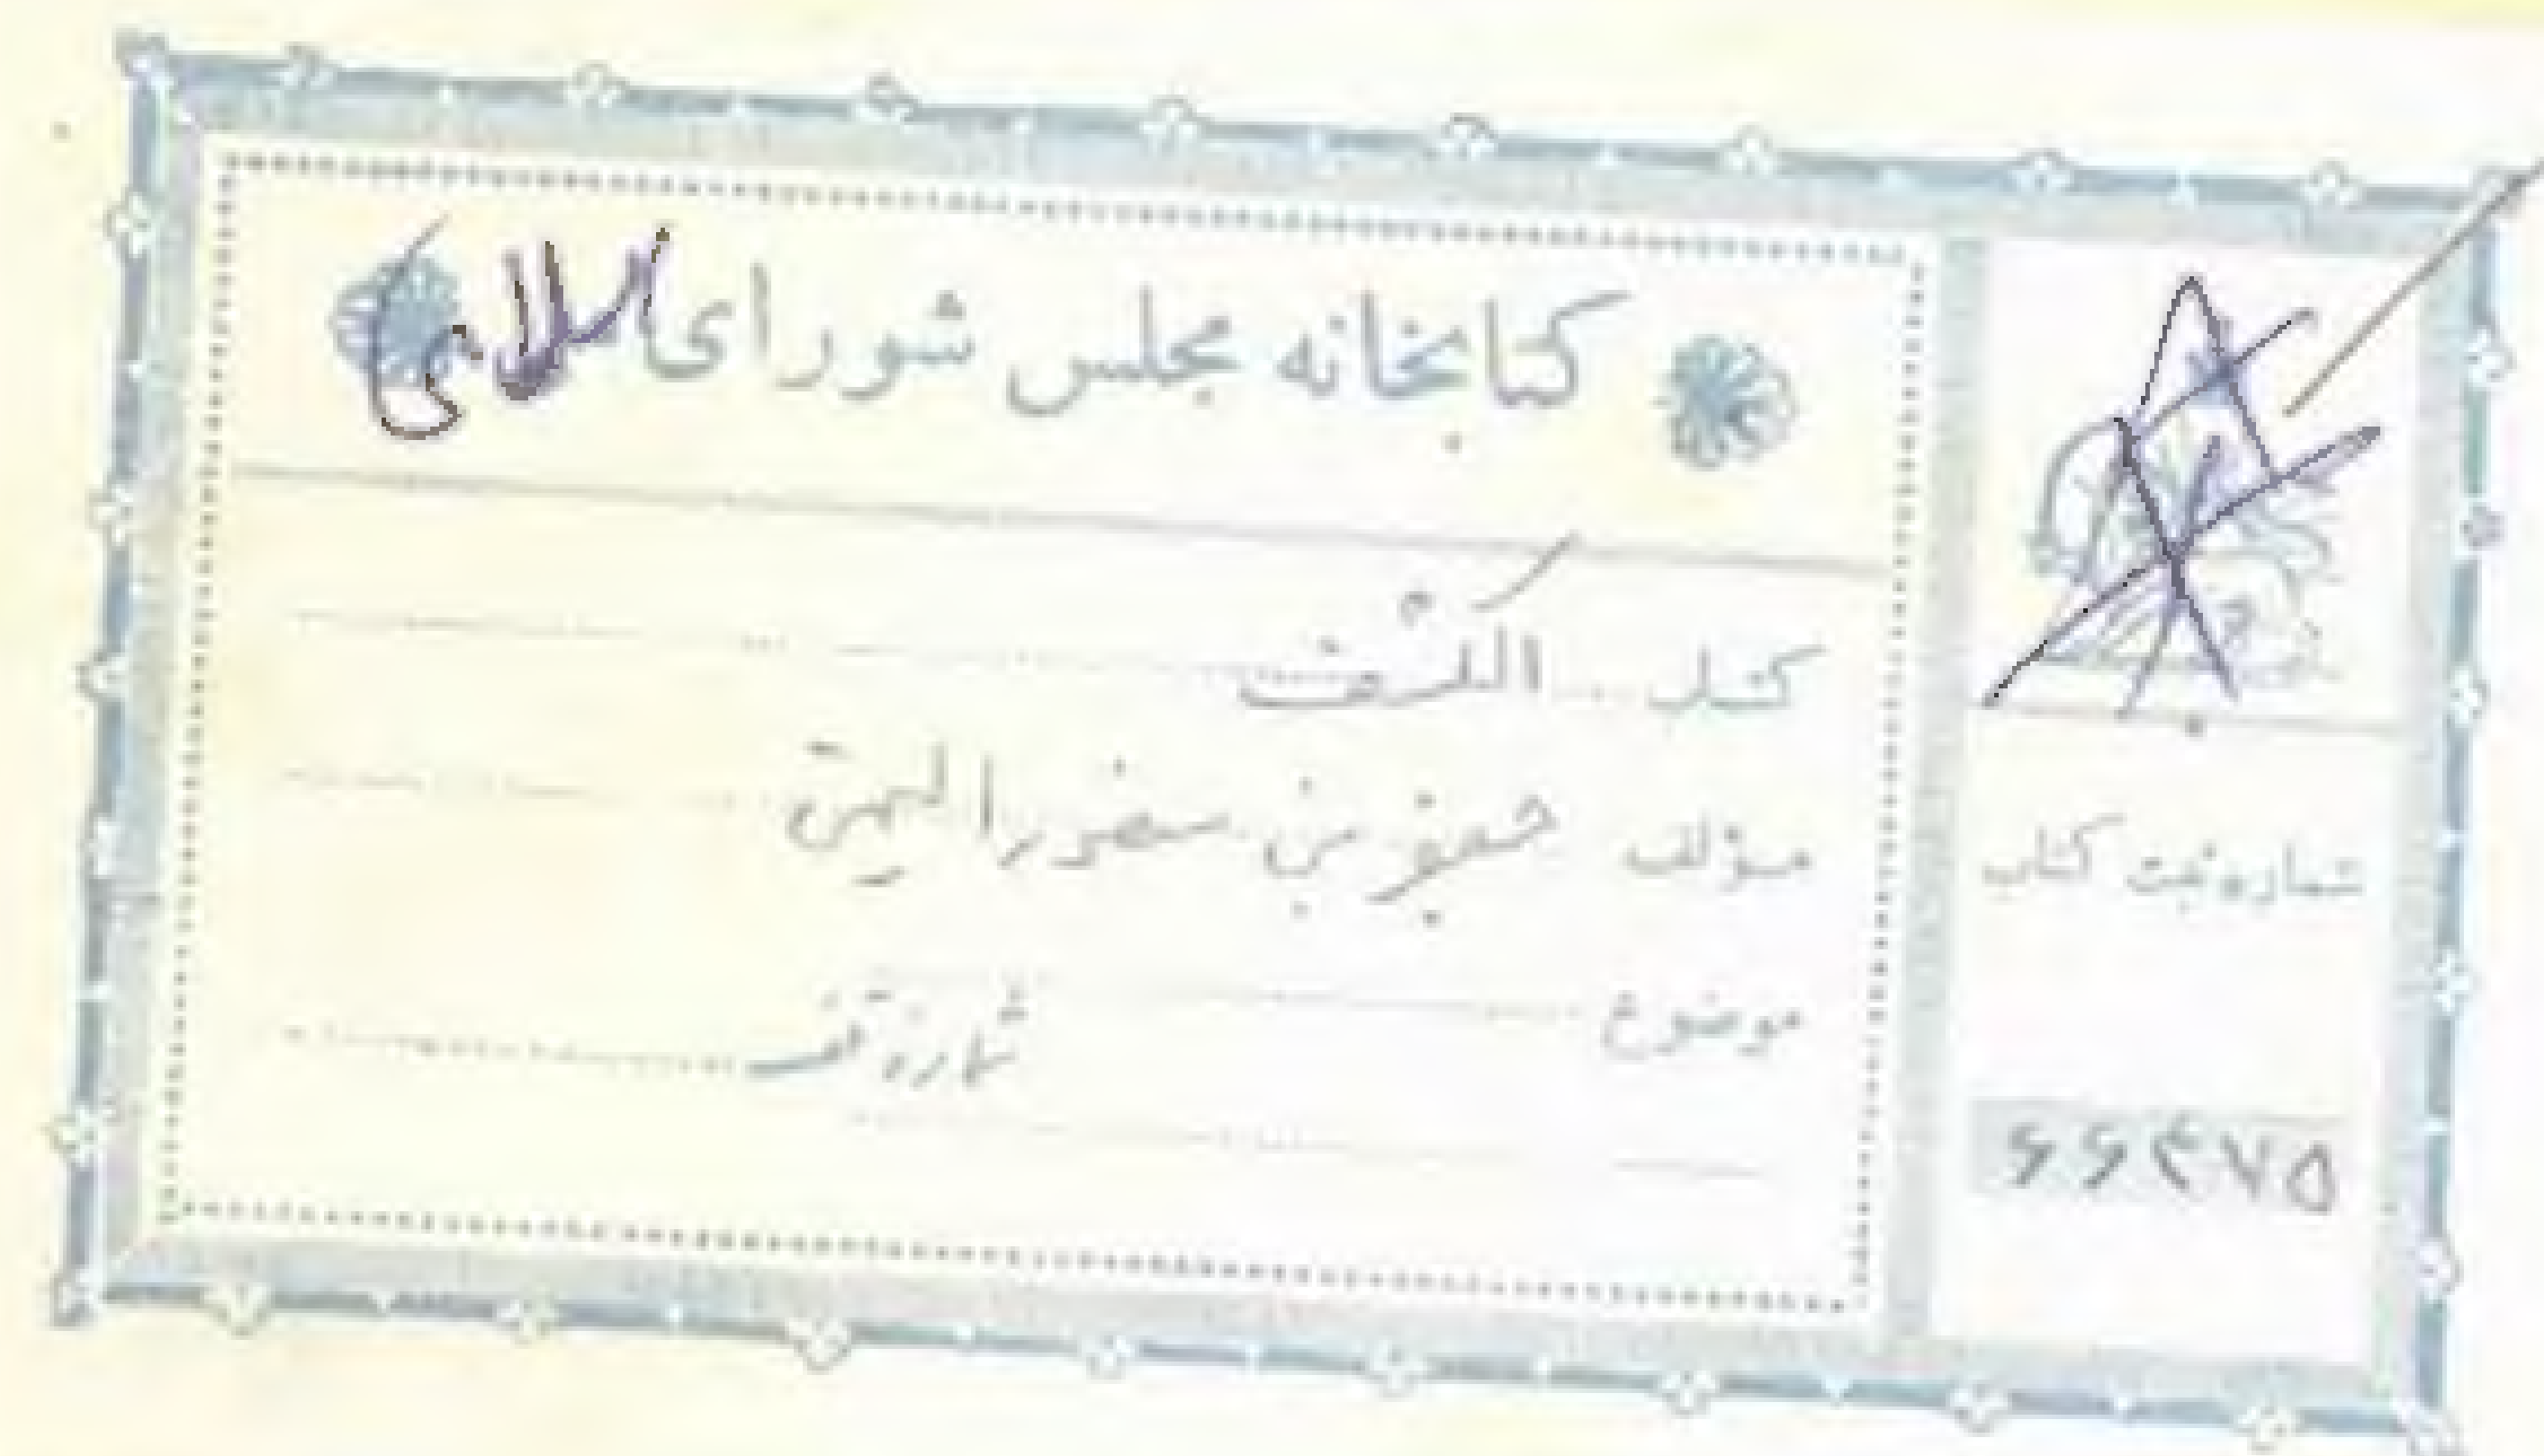 کتابخانه مجلس شورای اسلامی
کتاب الکشف
مؤلف جعفر بن منصور الیمن
موضوع
شماره قفسه
شماره ثبت کتاب
۶۶۴۷۵